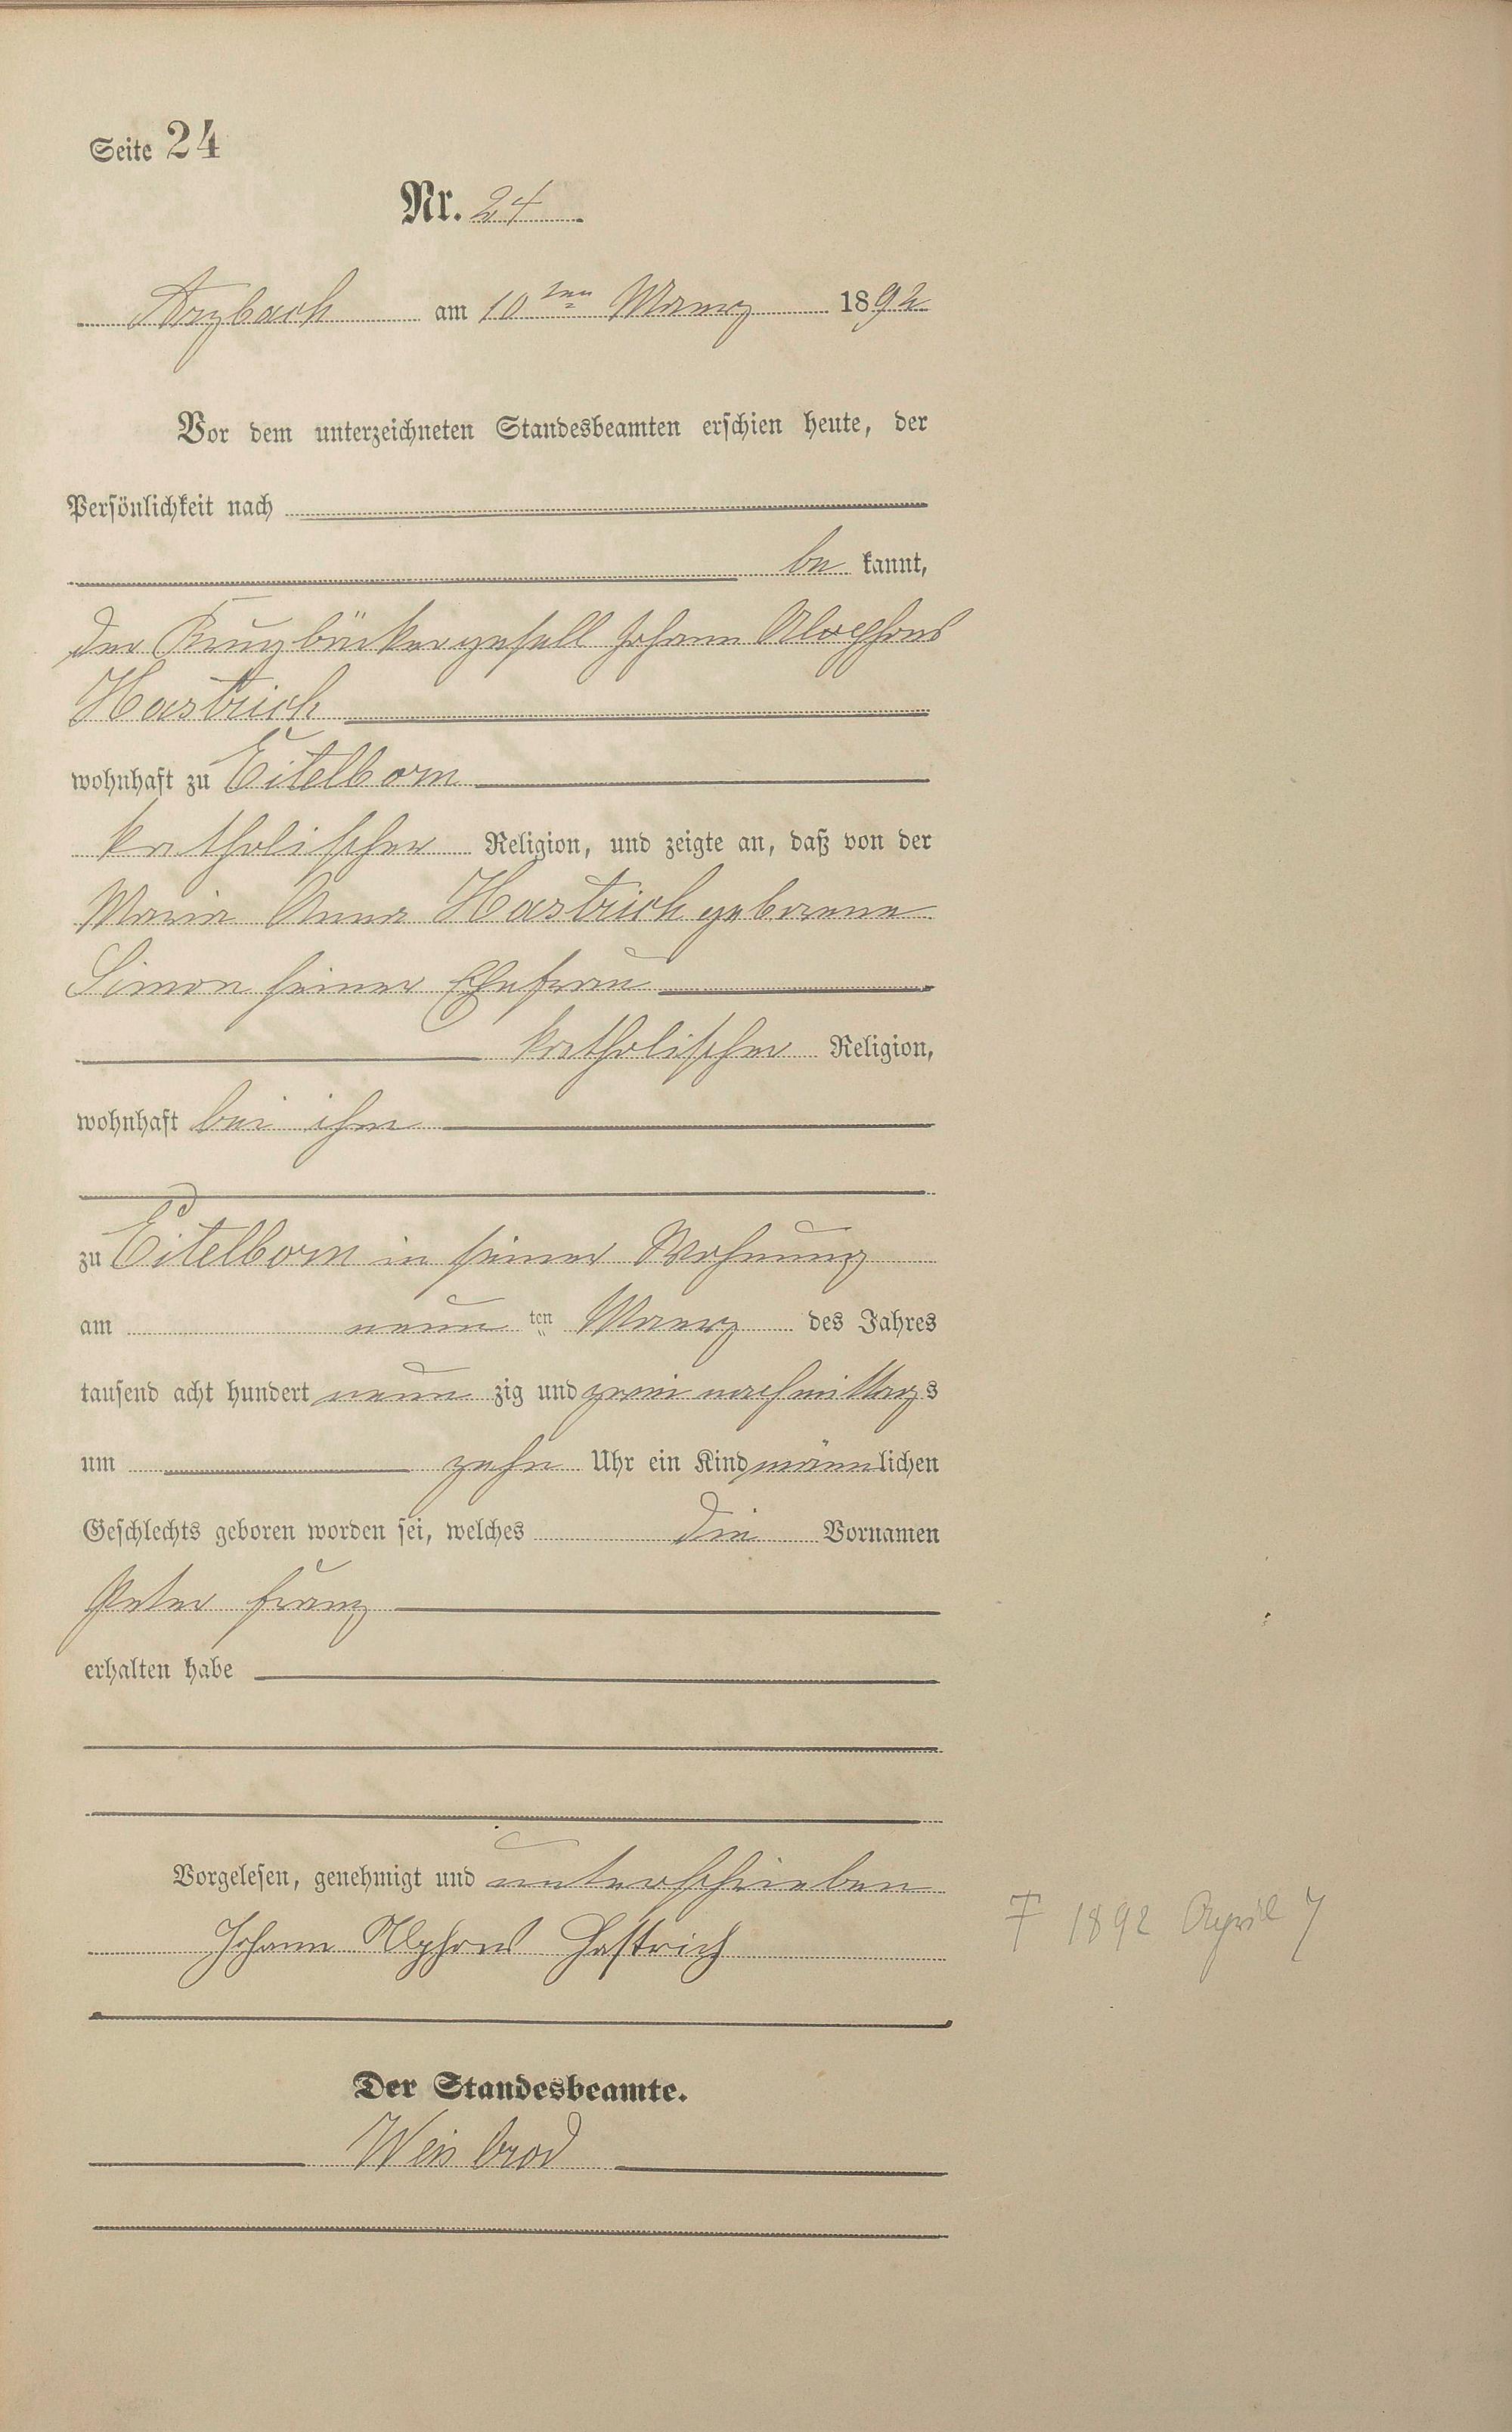 Seite 24
Nr. 24
Arzbach am 10ten Maerz 1892
Vor dem unterzeichneten Standesbeamten erschien heute, der
Persönlichkeit nach
be kannt,
der Krugbäckergesell Johann Alophons
Hastrich
wohnhaft zu Eitelborn
katholischer Religion, und zeigte an, daß von der
Maria Anna Hastrich geborene
Simon seiner Ehefrau
katholischer Religion,
wohnhaft bei ihm
zu Eitelborn in seiner Wohnung
am neun ten Maerz des Jahres
tausend acht hundert neun zig und zwei nachmittags
um zehn Uhr ein Kind männlichen
Geschlechts geboren worden sei, welches die Vornamen
Peter Franz
erhalten habe
Vorgelesen, genehmigt und unterschrieben
Johann Alphons Hastrich
† 1892 April 7
Der Standesbeamte.
Weisbrod